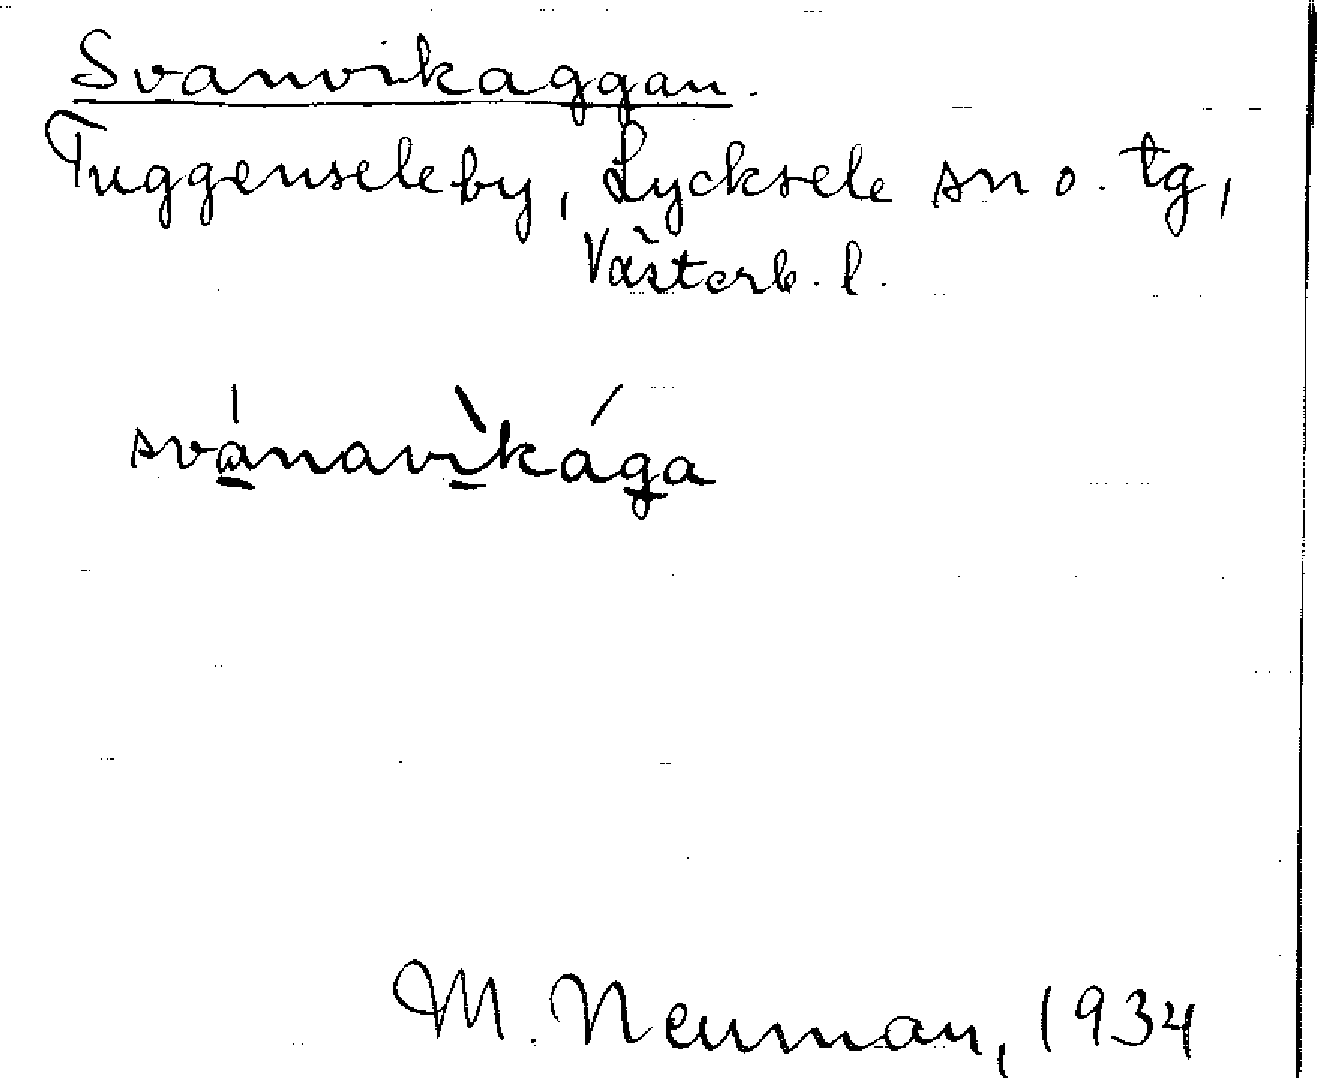 Svanvikaggan.
Tuggenseleby, Lycksele sn o. tg,
Västerb. l.
svánavìkága
M. Neuman, 1934